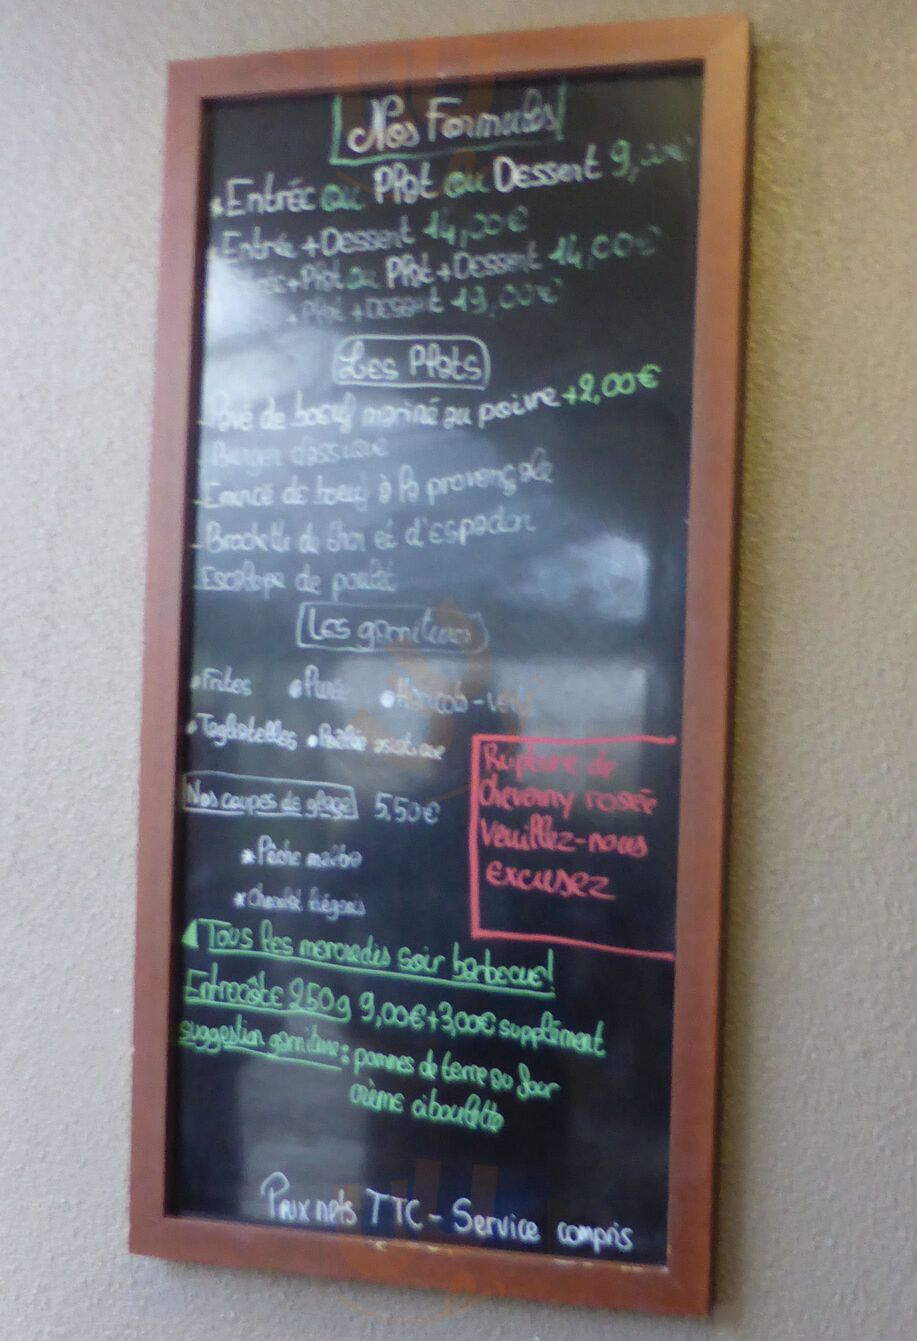 Nos Formules
* Entrée ou Plat ou Dessert 9,00€
Entrée + Dessert 14,00€
+ Plat ou Plat + Dessert 14,00€
+ Plat + Dessert 19,00€
Les Plats
- Pavé de boeuf mariné au poivre +2,00€
- Burger classique
- Emincé de boeuf à la provençale
- Brochette de thon et d'espadon
- Escalope de poulet
Les garnitures
• Frites • Purée • Haricots-verts
• Tagliatelles • Poêlée asiatique
Nos coupes de glace 5,50€
* Pêche melba
* Chocolat liégeois
Rupture de
Cheverny rosée
Veuillez-nous
excusez
Tous les mercredis soir barbecue!
Entrecôte 250g 9,00€+3,00€ supplément
suggestion garniture : pommes de terre au four
crème ciboulette
Prix nets TTC - Service compris